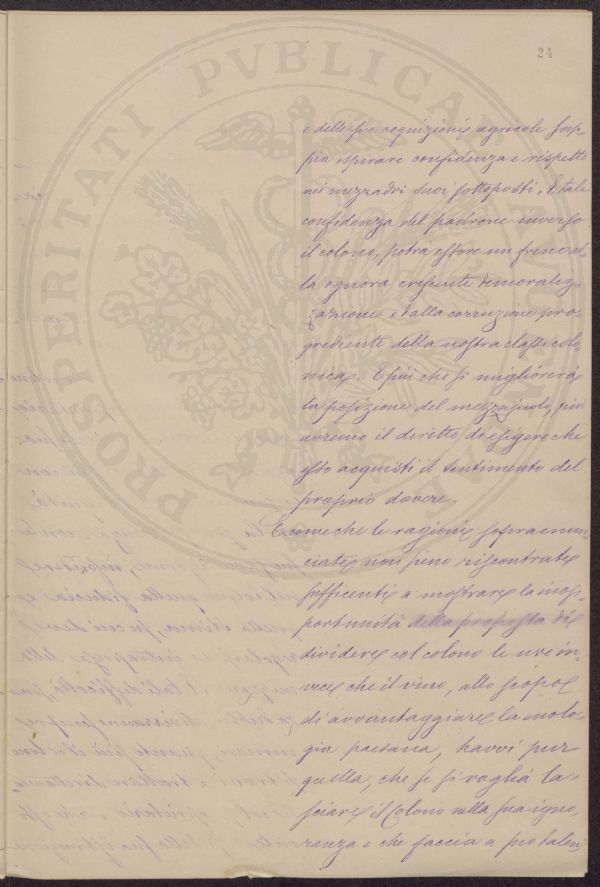 PROSPERITATI PVBLICAE
24
e delle sue cognizioni agricole sap-
pia ispirare confidenza e rispetto
nei mezzadri suoi sottoposti. E tale
confidenza del padrone inverso
il colono, potrà essere un freno al-
la ognora crescente demoraliz-
zazione e dalla corruzione pro-
grediente della nostra classe colo-
nica. E più che si migliorerà
la posizione del mezzajuolo, più
avremo il diritto di esigere che
esso acquisti il sentimento del
proprio dovere.
E come che le ragioni sopraenun-
ciate non sieno riscontrate
sufficenti a mostrare la inop-
portunità della proposta di
dividere col colono le uve in-
vece che il vino, allo scopo
di avvantaggiare la enolo-
gia paesana, havvi pur
quella, che se si voglia la-
sciare il Colono nella sua igno-
ranza e che faccia a suo talen-